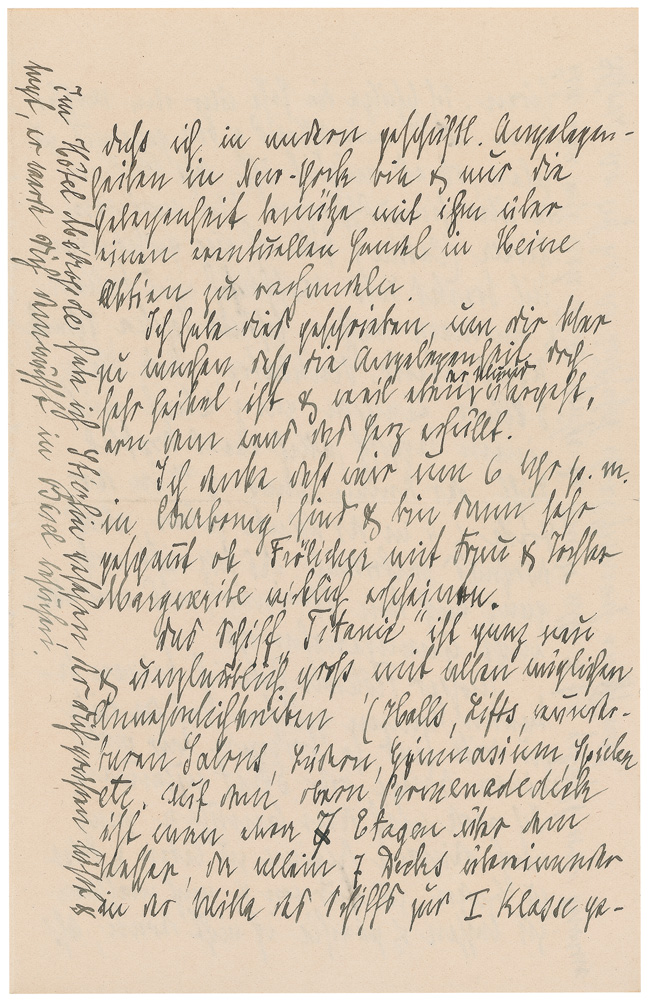 dass ich in andern geschäftl. Angelegen-
heiten in New-York bin & nur die
Gelegenheit benütze mit ihm über
einen eventuellen Handel in Heine
Aktien zu verhandeln.
Ich habe dies geschrieben, um dir klar
zu machen, dass die Angelegenheit doch
sehr heikel ist & weil eben der Mund übergeht,
von dem was das Herz erfüllt.
Ich denke dass wir um 6 Uhr p. m.
in Cherbourg sind & bin dann sehr
gespannt ob Frölicher mit Frau & Tochter
Marguerite wirklich erscheinen.
Das Schiff „Titanic" ist ganz neu
& unglaublich gross mit allen möglichen
Annehmlichkeiten (Halls, Lifts, wunder-
baren Salons, Bädern, Gymnasium, Spielen
etc. Auf dem obern Promenadedeck
ist man etwa 7 Etagen über dem
Wasser, da allein 7 Decks übereinander
in der Mitte des Schiffs zur I Klasse ge-
Im Hôtel Métropole habe ich Stierlin gesehen der dich grüssen lässt &
sagt, er werde dich demnächst in Basel besuchen.